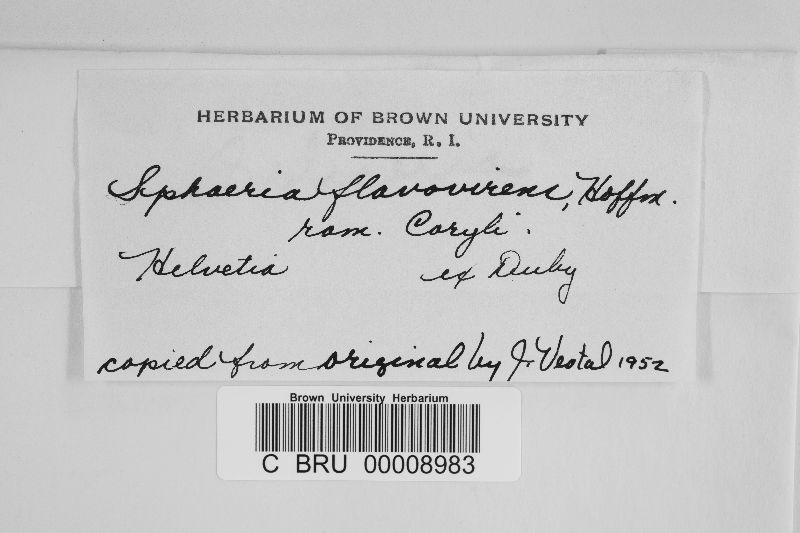 HERBARIUM OF BROWN UNIVERSITY
PROVIDENCE, R. I.
Sphaeria flavovirens, Hoffm.
ram. Coryli.
Helvetia ex Duby
copied from original by J. Vestal 1952
Brown University Herbarium
C BRU 00008983